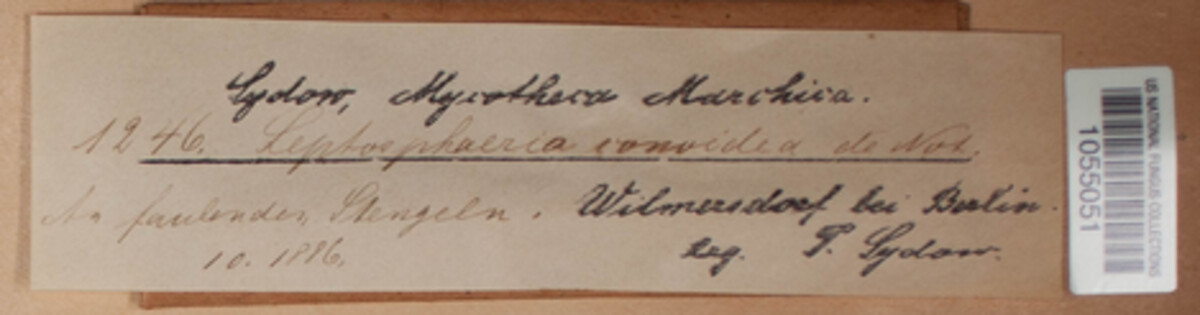 Sydow, Mycotheca Marchica.
1246. Leptosphaeria conoidea de Not.
An faulenden Stengeln. Wilmersdorf bei Berlin.
10. 1886. leg. P. Sydow.
US NATIONAL FUNGUS COLLECTIONS
1055051